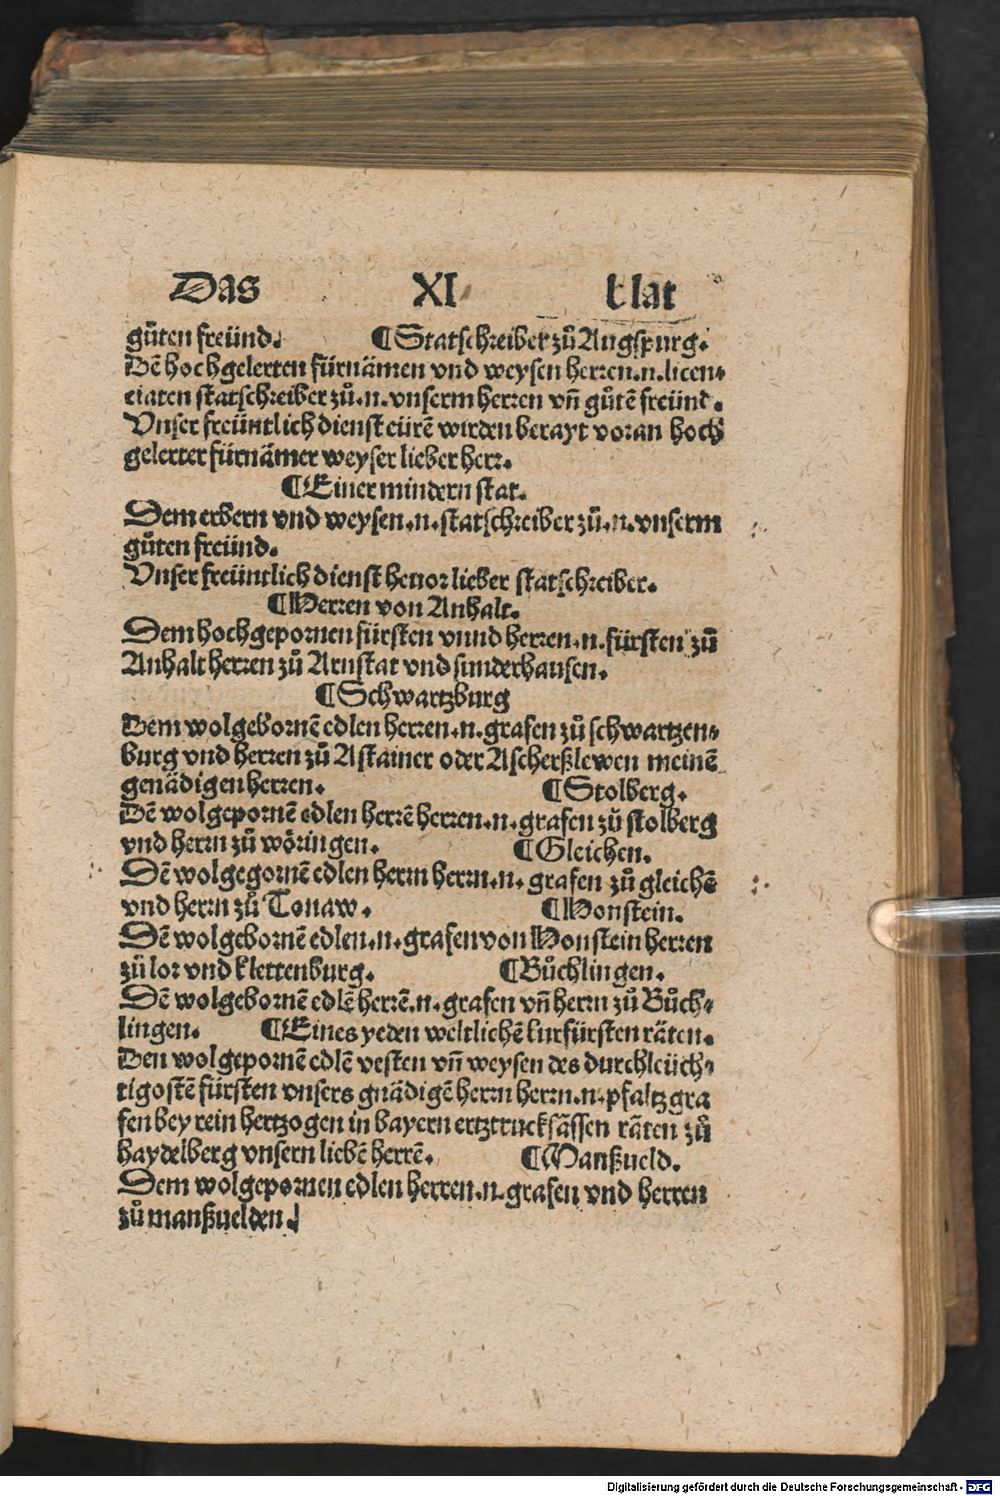 Das XI blat
gůten freünd. ¶Statschreiber zů Augspurg.
Dē hochgelerten fürnämen vnd weysen herren.n.licen⸗
ciaten statschreiber zů.n.vnserm herren vñ gůtē freünd.
Vnser freüntlich dienst eürē wirden berayt voran hoch
gelerter fürnämer weyser lieber herr.
¶Einer mindern stat.
Dem erbern vnd weysen.n.statschreiber zů.n.vnserm
gůten freünd.
Vnser freüntlich dienst beuor lieber statschreiber.
¶Herren von Anhalt.
Dem hochgepornen fürsten vnnd herren.n.fürsten zů
Anhalt herren zů Arnstat vnd sunderhausen.
¶Schwartzburg
Dem wolgebornē edlen herren.n.grafen zů schwartzen⸗
burg vnd herren zů Astainer oder Ascherßlewen meinē
genädigen herren. ¶Stolberg.
Dē wolgepornē edlen herrē herren.n.grafen zů stolberg
vnd herrn zů wöringen. ¶Gleichen.
Dē wolgegornē edlen herrn herrn.n.grafen zů gleichē
vnd herrn zů Tonaw. ¶Honstein.
Dē wolgebornē edlen.n.grafen von Honstein herren
zů lor vnd klettenburg. ¶Bůchlingen.
Dē wolgebornē edlē herrē.n.grafen vñ herrn zů Bůch⸗
lingen. ¶Eines yeden weltlichē kurfürsten räten.
Den wolgepornē edlē vesten vñ weysen des durchleüch⸗
tigostē fürsten vnsers gnädigē herrn herrn.n.pfaltzgra
fen bey rein hertzogen in bayern ertztrucksässen räten zů
haydelberg vnsern liebē herrē. ¶Manßueld.
Dem wolgepornen edlen herren.n.grafen vnd herren
zů manßuelden.
Digitalisierung gefördert durch die Deutsche Forschungsgemeinschaft - DFG